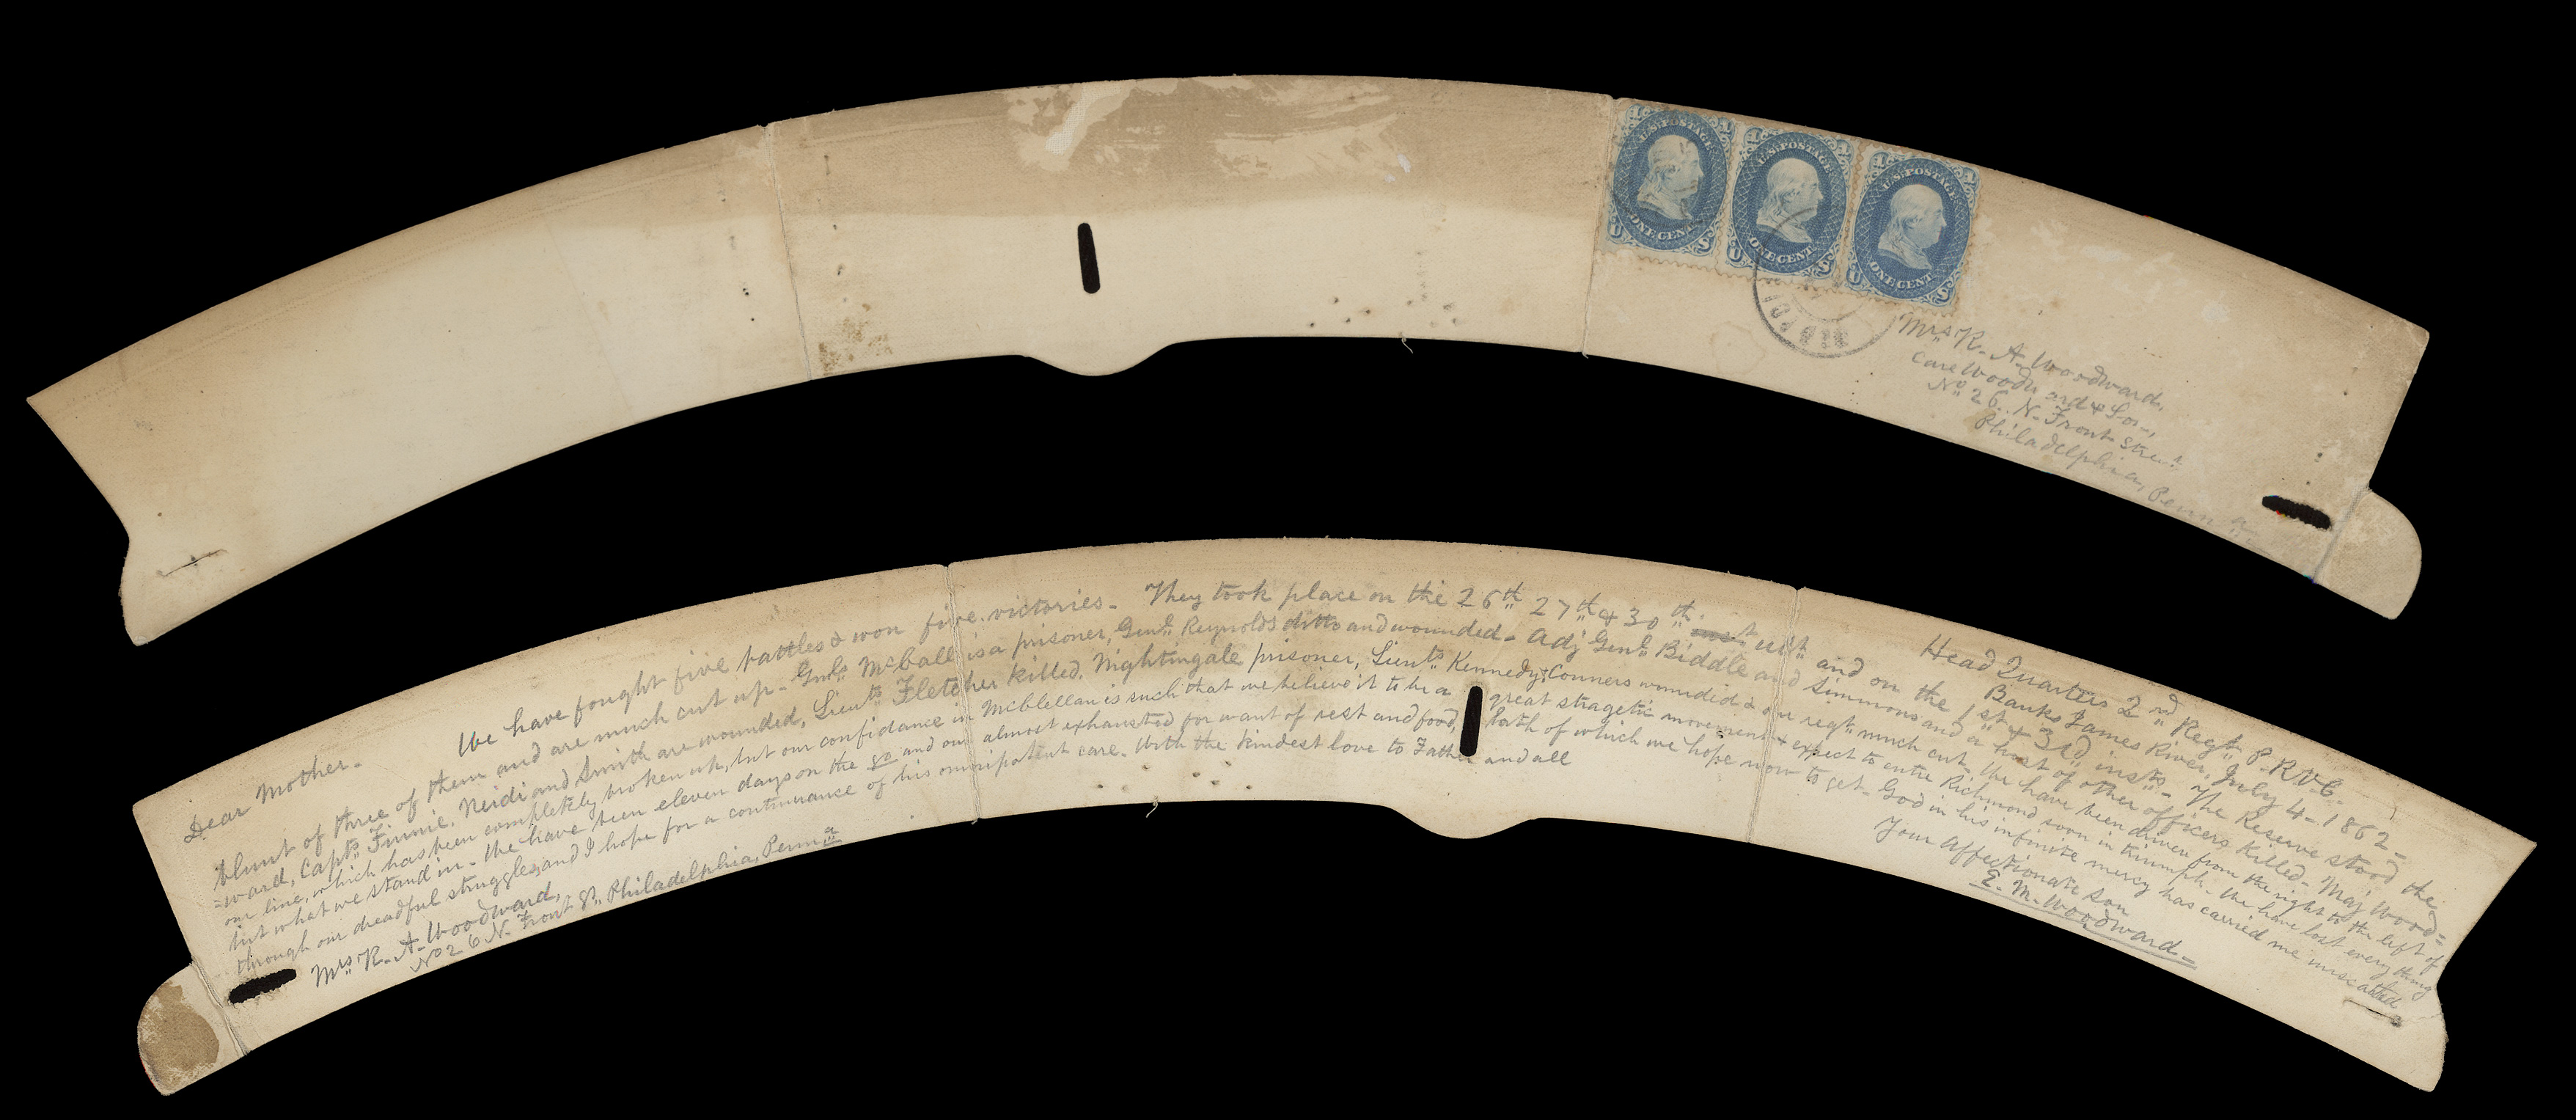 U.S. POSTAGE
ONE CENT
U.S. POSTAGE
ONE CENT
U.S. POSTAGE
ONE CENT
Mrs R. A. Woodward,
Care Woodward & Son,
No 26 N. Front Street
Philadelphia, Penna
Head Quarters 2nd Regt. P.R.V.C.
Banks James River, July 4- 1862-
Dear Mother-
We have fought five battles & won five victories- They took place on the 26th 27th & 30th. ult and on the 1st & 3rd insts- The Reserve stood the
blunt of three of them and are much cut up- Genls McCall is a prisoner, Genl Reynolds ditto and wounded- Adj Genl Biddle and Simmons and a host of other officers killed- Maj Wood=
=ward, Capts Finnie, Neidi and Smith are wounded, Lieuts Fletcher killed, Nightingale prisoner, Lieuts Kennedy & Conners wounded & our regt much cut- We have been driven from the right to the left of
our line, which has been completely broken up, but our confidance in McClellan is such that we believe it to be a great stragetic movement & expect to entre Richmond soon in triumph- We have lost every thing
but what we stand in- We have been eleven days on the go and our almost exhausted for want of rest and food, both of which we hope now to get- God in his infinite mercy has carried me unscathed
through our dreadful struggles, and I hope for a continuance of his omnipotent care- With the kindest love to Father and all
Your affectionate son
E. M. Woodward-
Mrs R. A. Woodward,
No 26 N. Front St, Philadelphia, Penna